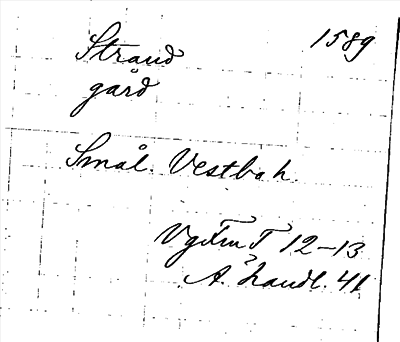 Strand 1589
gård
Smål. Vestbo h.
VgFmT 12-13
A. handl. 41